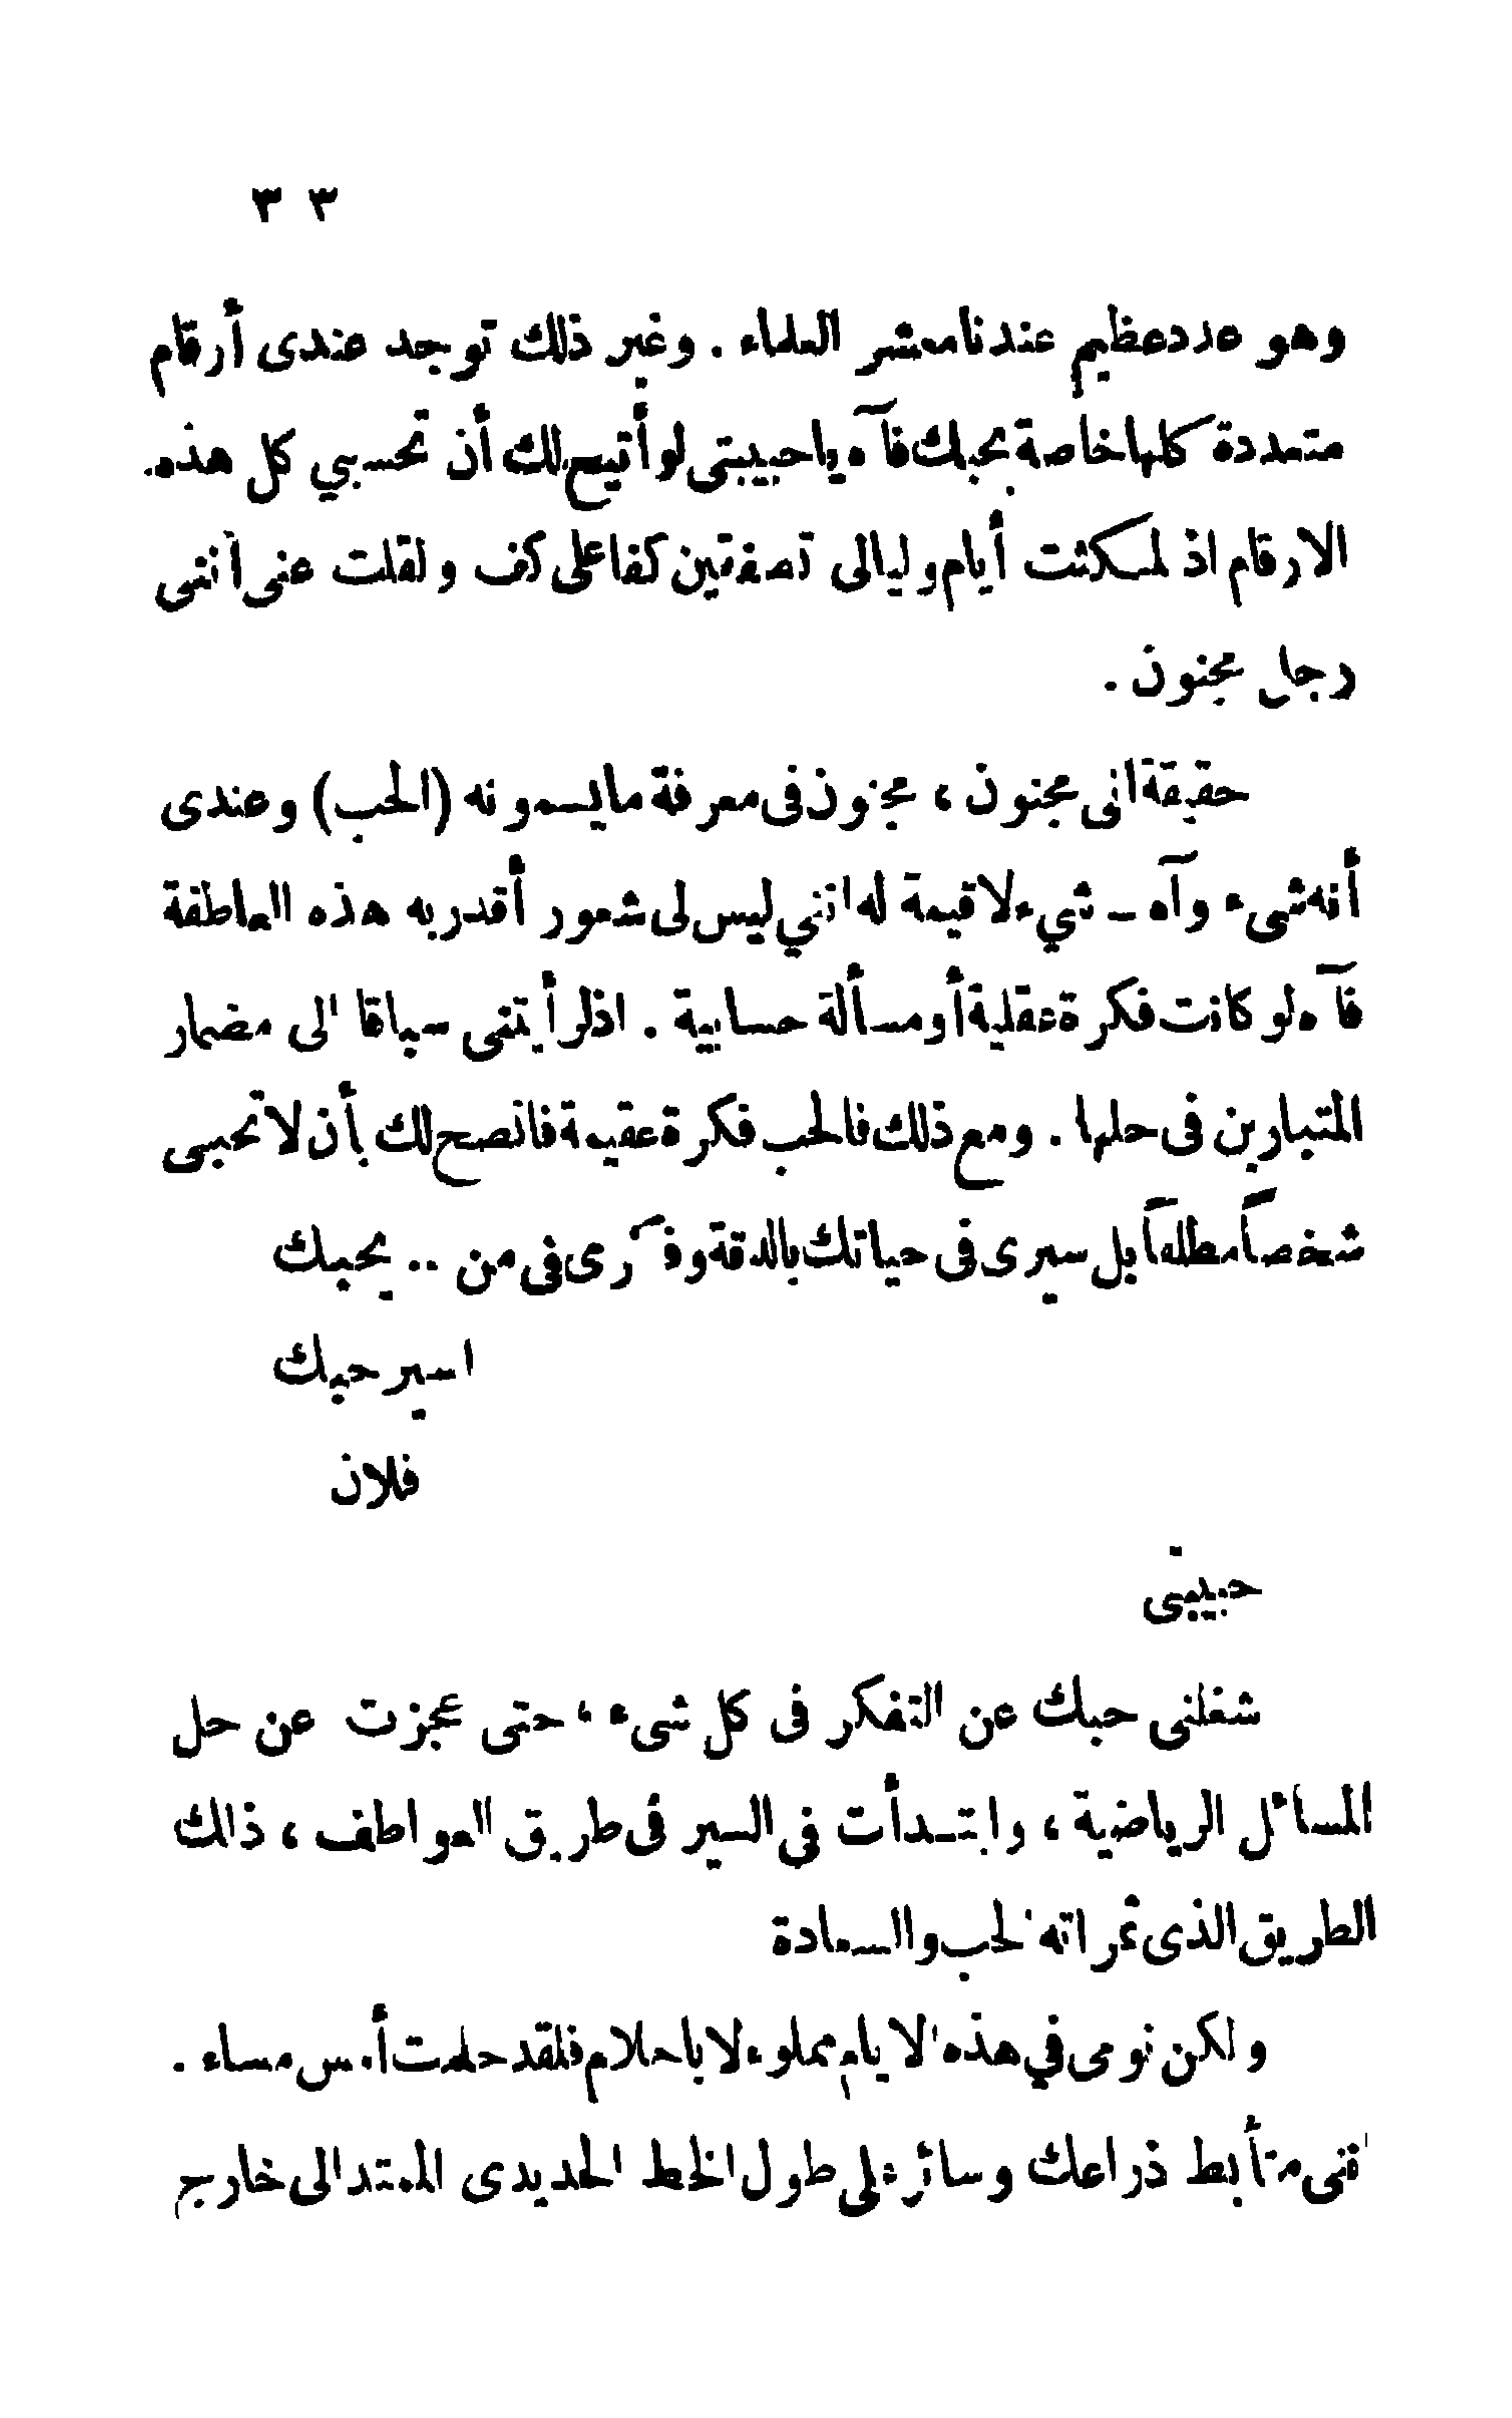 ٣٣
وهو عدد عظيم عندنا معشر العلماء . وغير ذلك توجد عندى أرقام
متعددة كلها خاصة بحبك فآه ياحبيبتى لو أتيح لك أن تحسبي كل هذه
الارقام اذ لمكثت أيام وليالى تصفقين كفا على كف ولقلت عنى اننى
رجل مجنون .
حقيقة انى مجنون ، مجنون فى معرفة مايسمونه (الحب) وعندى
أنه شىء وآه ــ شيء لا قيمة له اننى ليس لى شعور أقدر به هذه العاطفة
فآه لو كانت فكرة عقلية أو مسألة حسابية . اذ لرأيتنى سباقا الى مضمار
المتبارين فى حلها . ومع ذلك فالحب فكرة عقيمة فانصح لك بأن لا تحبى
شخصاً مطلقاً بل سيرى فى حياتك بالدقة وفكرى فى من .. يحبك
اسير حبك
فلان
حبيبتى
شغلنى حبك عن التفكر فى كل شىء ، حتى عجزت عن حل
المسائل الرياضية ، وابتدأت فى السير فى طريق العواطف ، ذلك
الطريق الذى ثمراته الحب والسعادة
ولكن نومى في هذه الايام مملوء لا باحلام فلقد حلمت أمس مساء .
اننى متأبط ذراعك وسائر على طول الخط الحديدى الممتد الى خارج